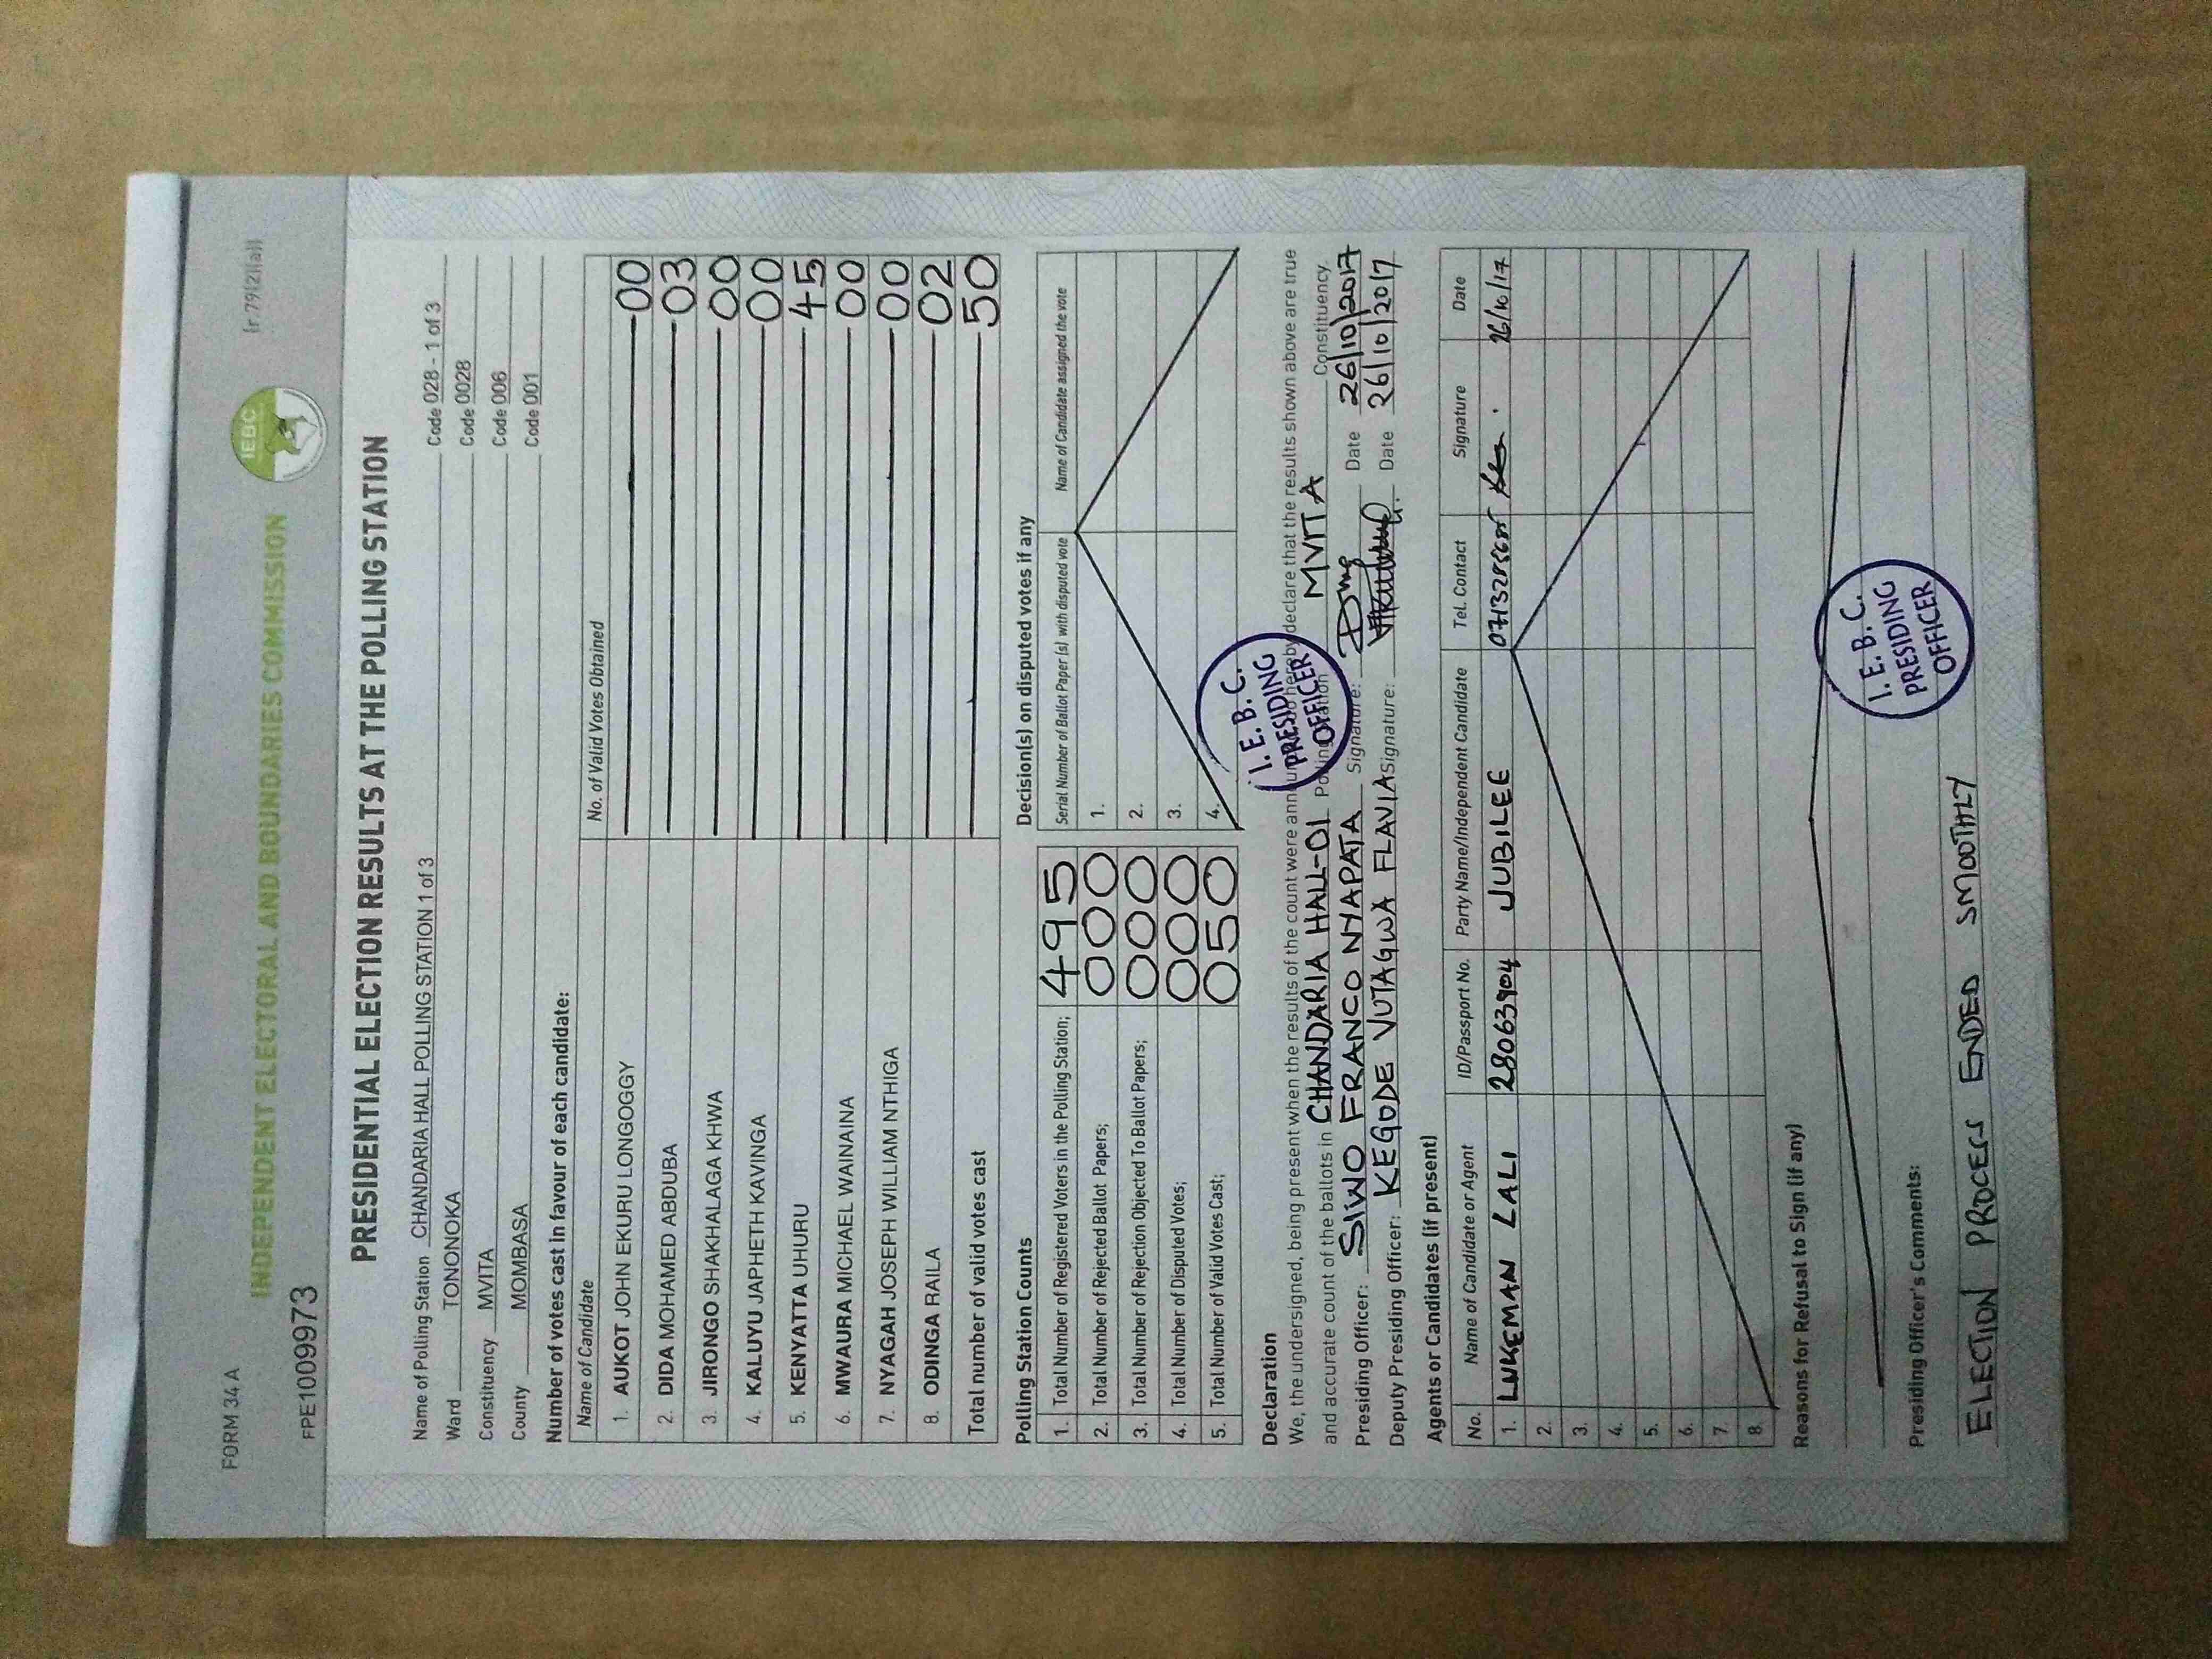 FORM 34 A
(r.79(2)(a))
INDEPENDENT ELECTORAL AND BOUNDARIES COMMISSION
IEBC
FPE1009973
PRESIDENTIAL ELECTION RESULTS AT THE POLLING STATION
Name of Polling Station CHANDARIA HALL POLLING STATION 1 of 3 Code 028 - 1 of 3
Ward TONONOKA Code 0028
Constituency MVITA Code 006
County MOMBASA Code 001
Number of votes cast in favour of each candidate:
Name of Candidate No. of Valid Votes Obtained
1. AUKOT JOHN EKURU LONGOGGY 00
2. DIDA MOHAMED ABDUBA 03
3. JIRONGO SHAKHALAGA KHWA 00
4. KALUYU JAPHETH KAVINGA 00
5. KENYATTA UHURU 45
6. MWAURA MICHAEL WAINAINA 00
7. NYAGAH JOSEPH WILLIAM NTHIGA 00
8. ODINGA RAILA 02
Total number of valid votes cast 50
Polling Station Counts
1. Total Number of Registered Voters in the Polling Station; 495
2. Total Number of Rejected Ballot Papers; 000
3. Total Number of Rejection Objected To Ballot Papers; 000
4. Total Number of Disputed Votes; 000
5. Total Number of Valid Votes Cast; 050
Decision(s) on disputed votes if any
Serial Number of Ballot Paper (s) with disputed vote Name of Candidate assigned the vote
1.
2.
3.
4.
Declaration
We, the undersigned, being present when the results of the count were announced, do hereby declare that the results shown above are true
and accurate count of the ballots in CHANDARIA HALL-01 Polling Station MVITA Constituency.
Presiding Officer: SIWO FRANCO NYAPATA Signature: Date 26/10/2017
Deputy Presiding Officer: KEGODE VUTAGWA FLAVIA Signature: Date 26/10/2017
I.E.B.C.
PRESIDING
OFFICER
Agents or Candidates (if present)
No. Name of Candidate or Agent ID/Passport No. Party Name/Independent Candidate Tel. Contact Signature Date
1. LUKEMAN LALI 28063904 JUBILEE 26/10/17
2.
3.
4.
5.
6.
7.
8.
Reasons for Refusal to Sign (if any)
I.E.B.C.
PRESIDING
OFFICER
Presiding Officer's Comments:
ELECTION PROCESS ENDED SMOOTHLY